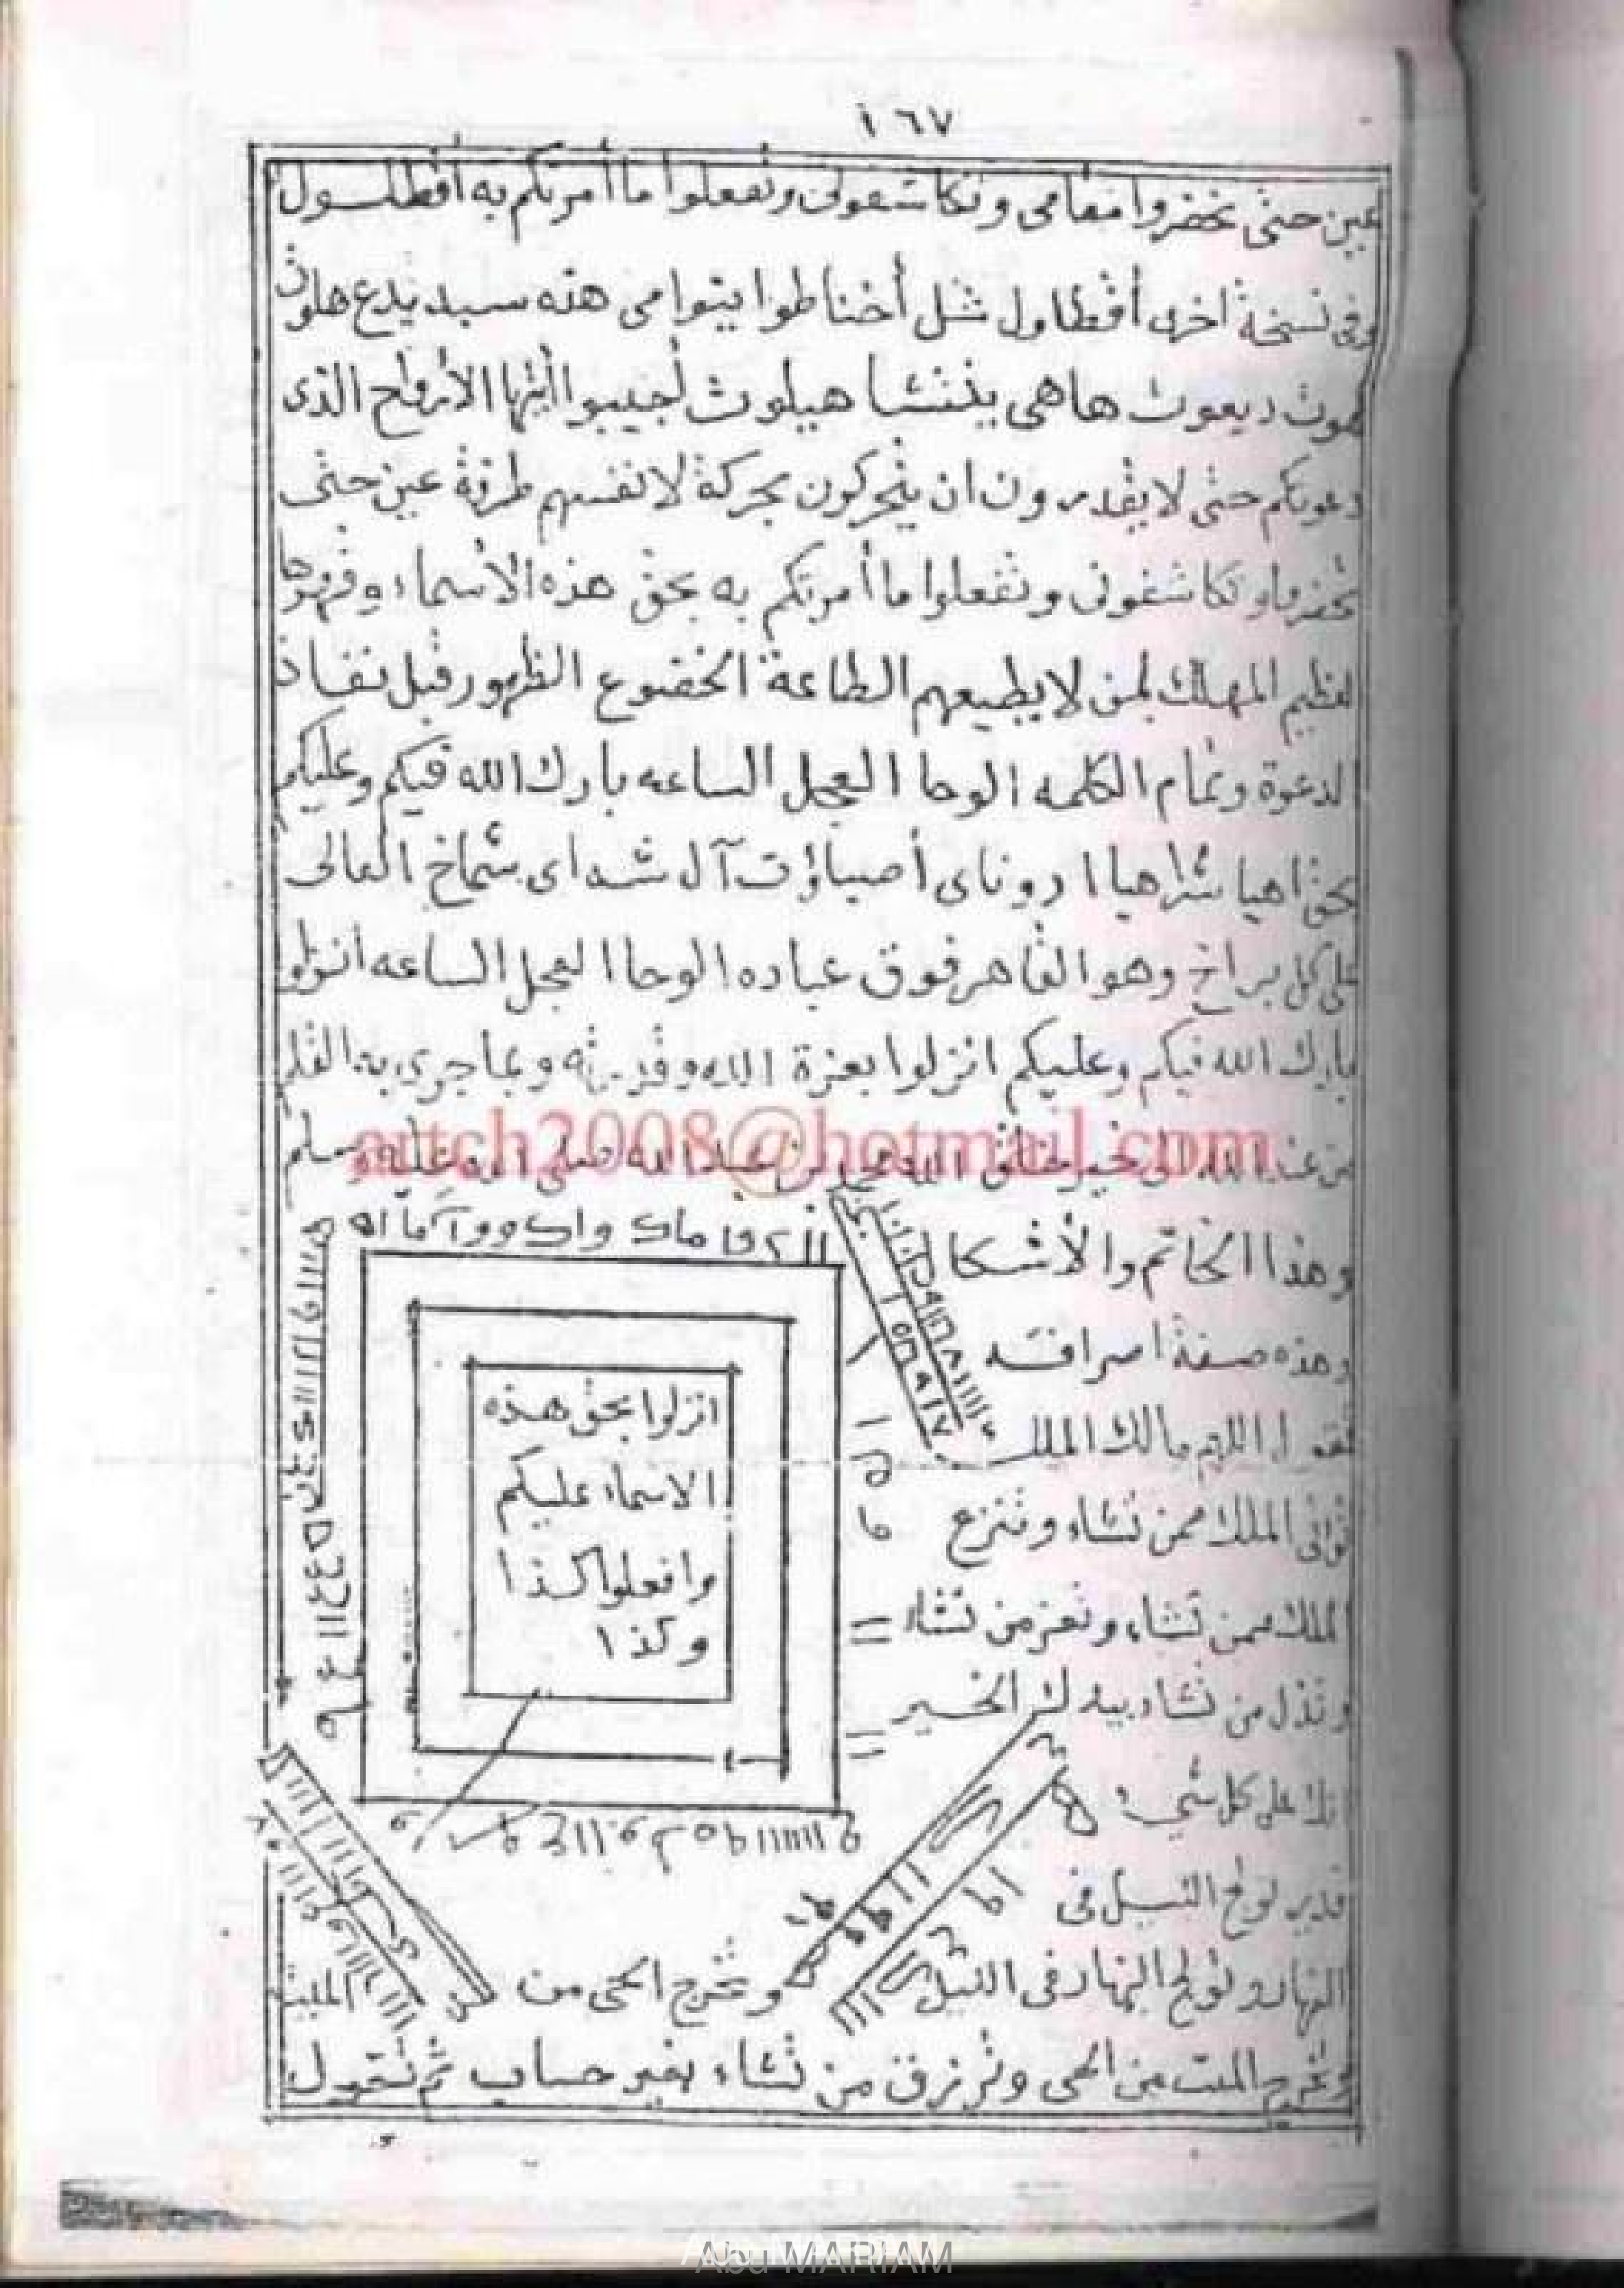 ١٦٧
عين حتى تحضروا مقامى وتكاشفونى وتفعلوا ما أمرتكم به أقطلسول
وفى نسخة أخرى أقطاول شل أخناطوا يتوامى هذه سبد يدع هلوت
هوث ديعوث هاهى يذنتشا هيلوث أجيبوا أيتها الأرواح الذى
دعوتكم حتى لا يقدرون ان يتحركون بحركة لانفسهم طرفة عين حتى
تحضروا وتكاشفونى وتفعلوا ما أمرتكم به بحق هذه الأسماء وقهرها
لعظيم المهلك لمن لا يطيعهم الطاعة الخضوع الظهور قبل نفاذ
الدعوة وتمام الكلمه الوحا العجل الساعه بارك الله فيكم وعليكم
بحق اهيا شراهيا ادوناى أصباؤت آل شداى شماخ العالى
على كل براخ وهو القاهر فوق عباده الوحا العجل الساعه أنزلوا
بارك الله فيكم وعليكم انزلوا بعزة الله وقدرته وبما جرى به القلم
من عند الله الى خير خلق الله محمد بن عبد الله صلى الله عليه وسلم
artch2008@hotmail.com
وهذا الخاتم والأشكال
وهذه صفة اصرافه
تقول اللهم مالك الملك
تؤتى الملك ممن تشاء وتنزع
الملك ممن تشاء وتعز من تشاء
وتذل من تشاء بيدك الخير
انك على كل شيء
قدير تولج الليل فى
النهار وتولج النهار فى الليل وتخرج الحى من الميت
وتخرج الميت من الحى وترزق من تشاء بغير حساب ثم تقول
انزلوا بحق هذه
الاسماء عليكم
وافعلوا كذا
وكذا
Abu MARIAM